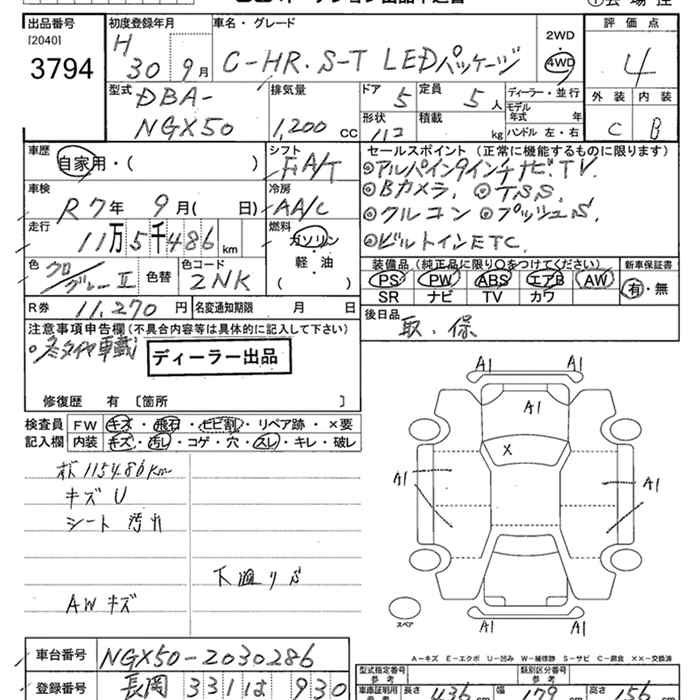 出品番号 初度登録年月 車名・グレード 評価点
[2040] H 2WD
3794 30 9月 C-HR. S-T LEDパッケージ 4WD 4
型式 排気量 ドア 定員 ディーラー・並行 外装 内装
DBA- 5 5人 モデル年式 年
NGX50 1,200 cc 形状 積載 kg ハンドル 左・右 C B
車歴 シフト セールスポイント (正常に機能するものに限ります)
自家用・( ) FA/T ◎アルパイン9インチナビ.TV.
車検 冷房 ◎Bカメラ. ◎TSS.
R7年 9月( 日) AA/C ◎クルコン ◎プッシュS.
走行 燃料 ◎ビルトインETC.
11万5千486km ガソリン
軽・油
( )
色 色替 色コード 装備品 (純正品に限り○をつけてください) 新車保証書
クロ/グレーII 2NK PS PW ABS エアB AW 有・無
SR ナビ TV カワ
R券 11,270円 名変通知期限 月 日 後日品
取.保
注意事項申告欄(不具合内容等は具体的に記入して下さい)
。冬タイヤ車載 ディーラー出品
修復歴 有 〔箇所 〕
検査員 FW キズ・飛石・ヒビ割・リペア跡・×要
記入欄 内装 キズ・汚レ・コゲ・穴・スレ・キレ・破レ
115486km
キズU
シート汚れ
下廻りS
AWキズ
A1 A1
A1
X
A1 A1
A1
スペア
A-キズ E-エクボ U-凹み W-補修跡 S-サビ C-腐食 ××-交換済
車台番号 NGX50-2030286 型式指定番号 類別区分番号
登録番号 長岡 331 は 930 車庫証明用 長さ 436 幅 179 高さ 156